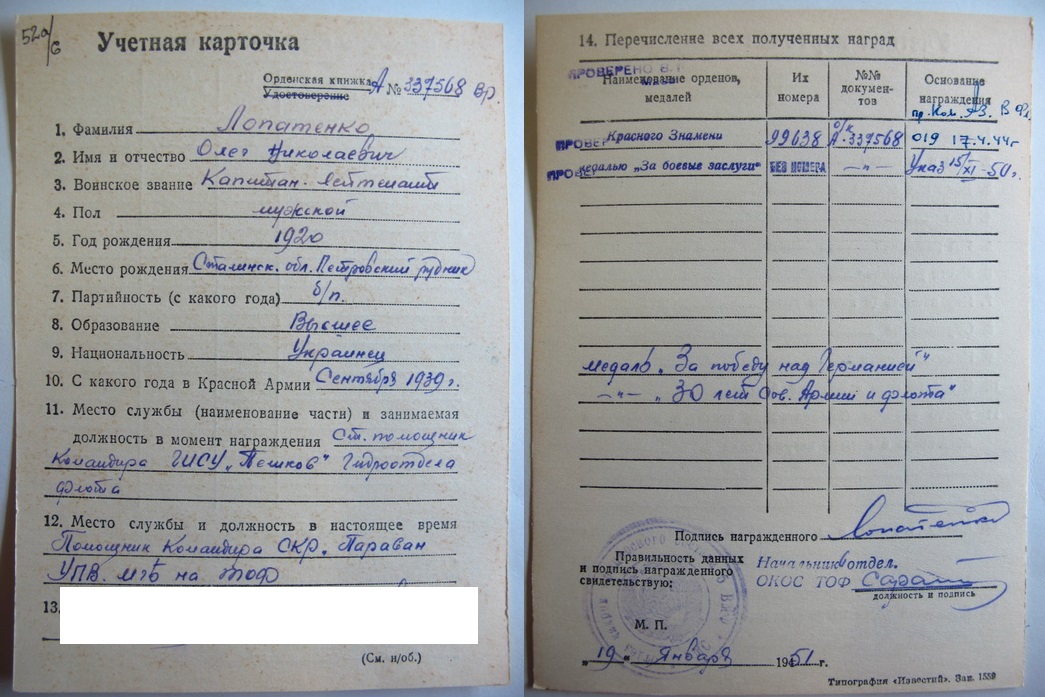 52а/6
Учетная карточка
Орденская книжка А № 337568 Вр.
Удостоверение
1. Фамилия Лопатенко
2. Имя и отчество Олег Николаевич
3. Воинское звание Капитан-лейтенант
4. Пол мужской
5. Год рождения 1920
6. Место рождения Сталинск. обл. Петровский рудник
7. Партийность (с какого года) б/п.
8. Образование Высшее
9. Национальность Украинец
10. С какого года в Красной Армии Сентября 1939 г.
11. Место службы (наименование части) и занимаемая
должность в момент награждения Ст. помощник
Командира ГИСУ „Пешков" Гидроотдела
флота
12. Место службы и должность в настоящее время
Помощник Командира СКР. Параван
УПВ. МГБ на ТОФ
13.
(См. н/об.)
14. Перечисление всех полученных наград
ПРОВЕРЕНО
Наименование орденов, медалей
Их номера
№№ документов
Основание награждения
пр. Ком. В Фл.
ПРОВЕ Красного Знамени 99638 о/к А-337568 019 17.4.44г
ПРОВЕ медалью „За боевые заслуги" БЕЗ НОМЕРА —„— Указ 15/XI-50г.
медаль „За победу над Германией"
—„— „30 лет Сов. Армии и флота"
Подпись награжденного Лопатенко
Правильность данных
и подпись награжденного
свидетельствую:
Начальник отдел.
ОКОС ТОФ
должность и подпись
М. П.
„19" Января 1951 г.
Типография «Известий». Зак. 1559